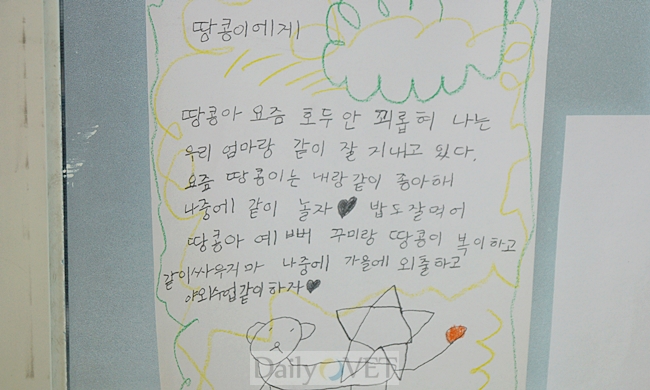 땅콩이에게
땅콩아 요즘 호두 안 꾀롭혀 나는
우리 엄마랑 같이 잘 지내고 있다.
요즘 땅콩이는 내랑같이 좋아해
나중에 같이 놀자♥ 밥도잘먹어
땅콩아 예뻐 꾸미랑 땅콩이 복이하고
같이싸우지마 나중에 가을에 외출하고
야외수업같이하자♥
DailyVET